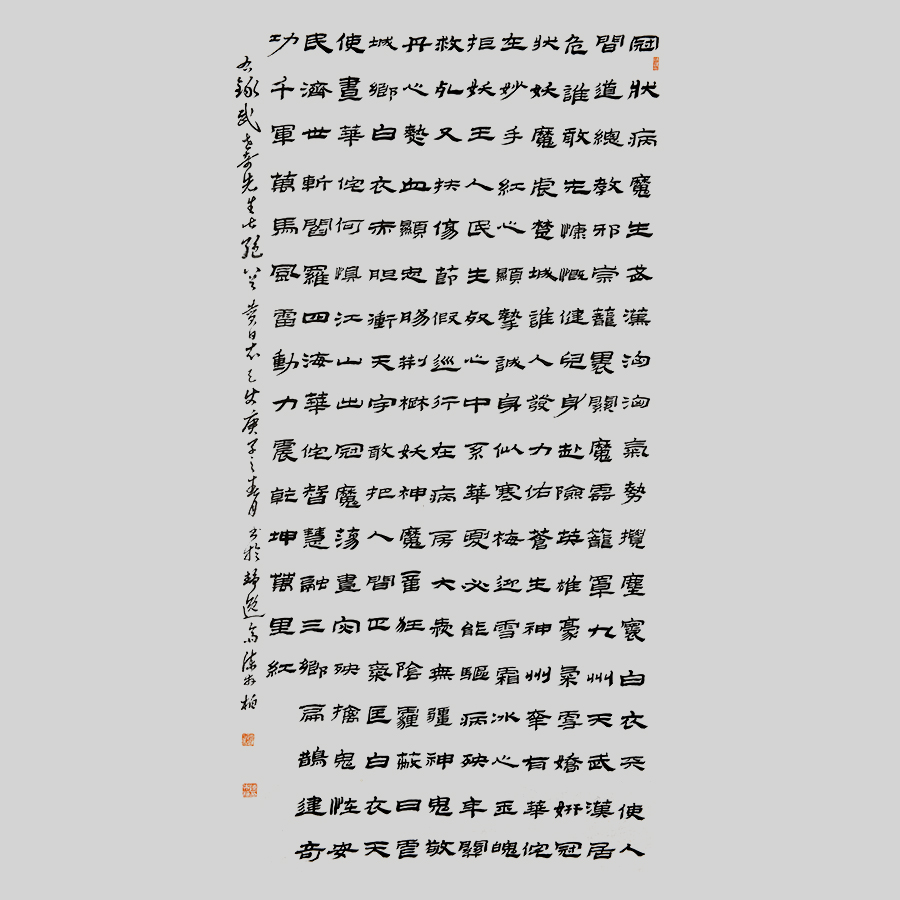 冠狀病魔生武漢洶洶氣勢攪塵寰白衣天使人
間道總教邪祟籠裏關魔雲籠罩九州天武漢居
危誰敢先慷慨健兒身赴險英雄豪氣雪嬌妍冠
狀妖魔虐楚城誰人發力佑蒼生神州幸有華佗
在妙手紅心顯摯誠身似寒梅迎雪霜冰心玉魄
拒妖王人民生死心中系華夏必能驅病殃牢關
救死又扶傷節假巡行在病房大愛無疆神鬼敬
丹心熱血顯忠腸荊楚妖神魔舞狂陰霾蔽日
城鄉白衣赤胆衝天宇敢把人間正氣匡白衣天
使畫華佗何懼江山出冠魔蕩盡灾殃擒鬼怪安
民濟世斬閻羅四海華佗智慧融三鄉扁鵲建奇
功千軍萬馬風雷動力震乾坤萬里紅
右錄武先生七絕八首庚子之春月書於靜遠齋